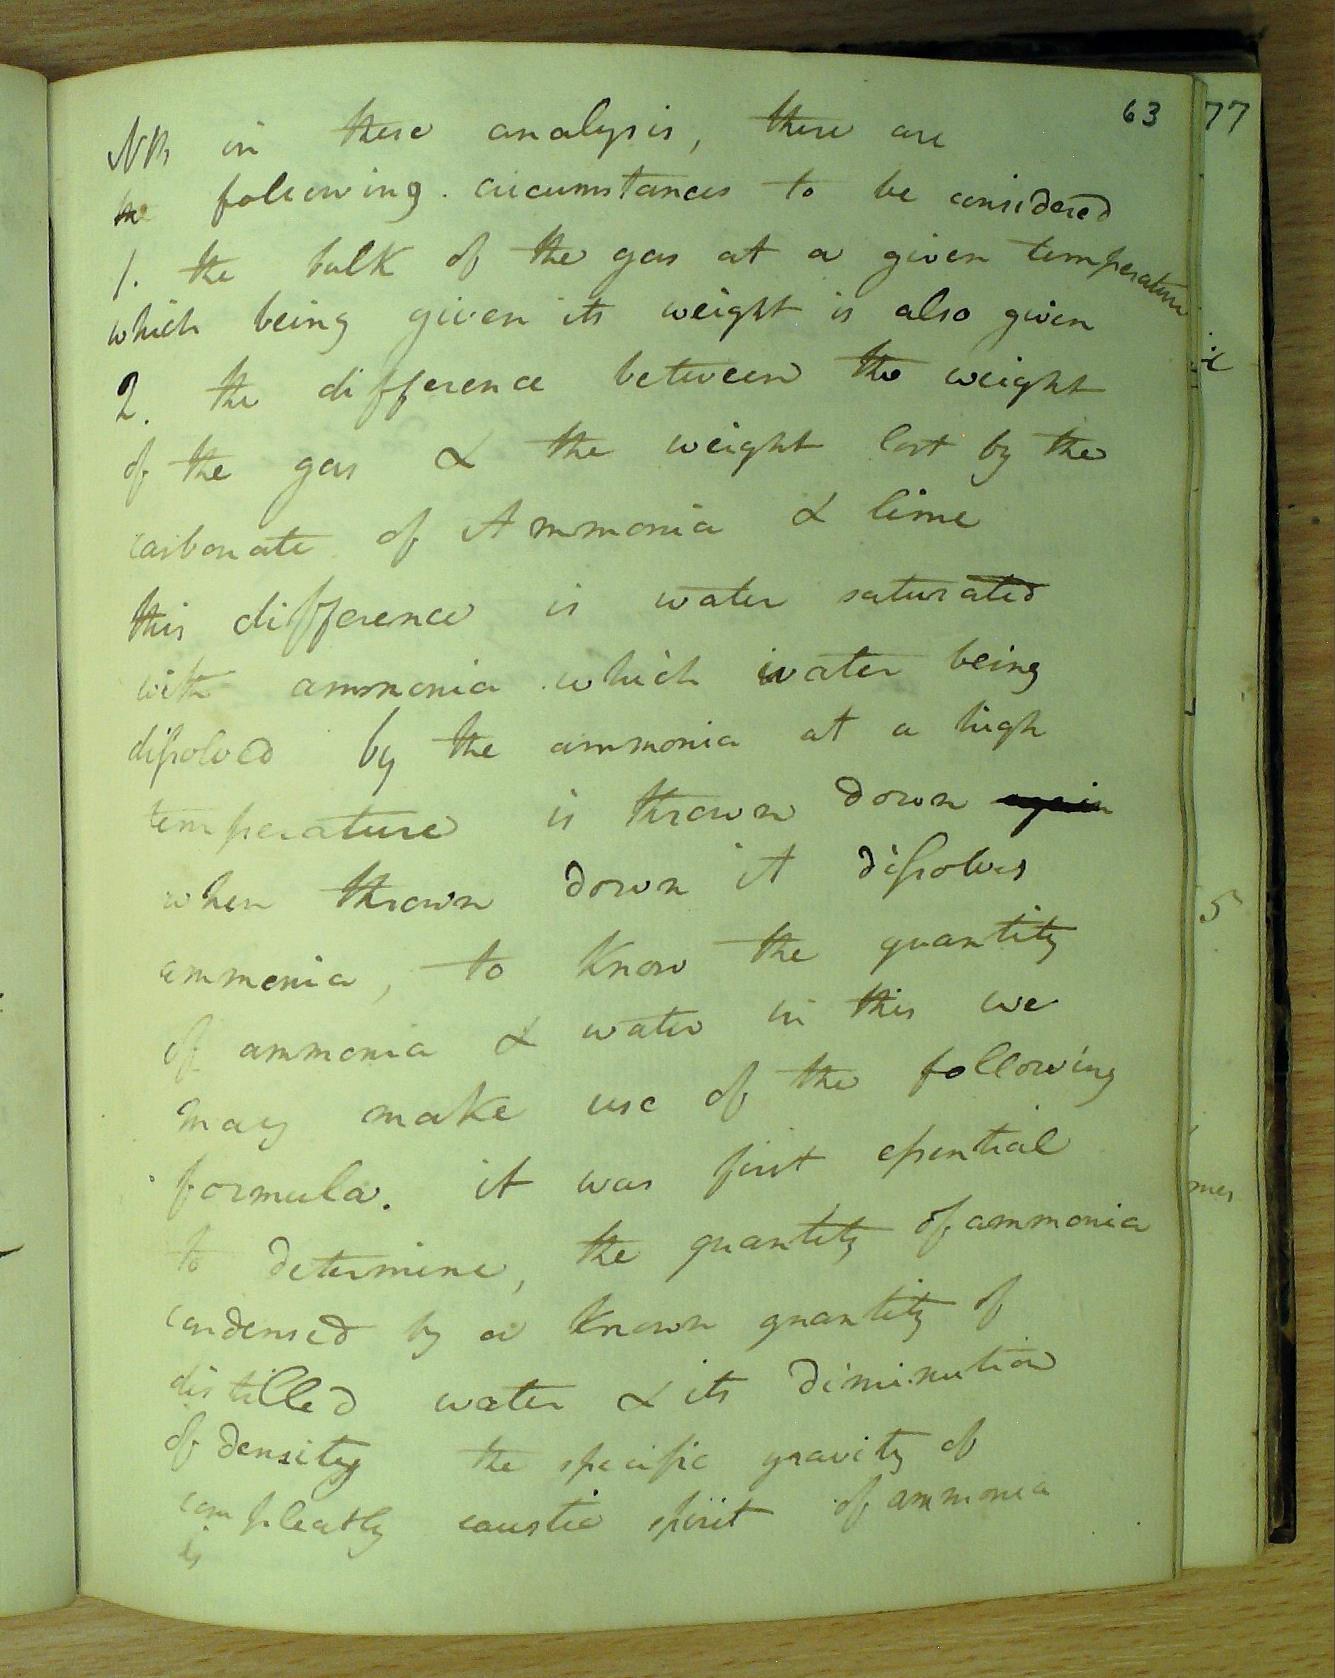 63
77
NB in these analysis, there are
the following circumstances to be considered
1. the bulk of the gas at a given temperature
which being given its weight is also given
2. the difference between the weight
of the gas & the weight lost by the
carbonate of Ammonia & lime
this difference is water saturated
with ammonia which water being
dissolved by the ammonia at a high
temperature is thrown down again
when thrown down it dissolves
ammonia, to know the quantity
of ammonia & water in this we
may make use of the following
formula. it was first essential
to determine, the quantity of ammonia
condensed by a known quantity of
distilled water & its diminution
of density the specific gravity of
compleatly caustic spirit of ammonia
is
5